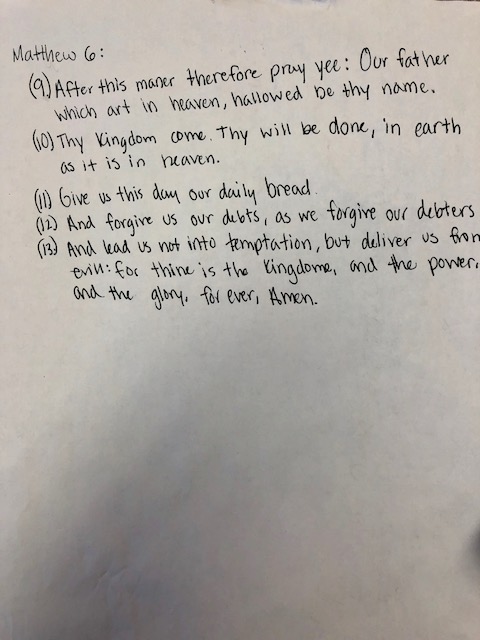 Matthew 6:
(9) After this maner therefore pray yee: Our father
which art in heaven, hallowed be thy name.
(10) Thy Kingdom come. Thy will be done, in earth
as it is in heaven.
(11) Give us this day our daily bread.
(12) And forgive us our debts, as we forgive our debters
(13) And lead us not into temptation, but deliver us from
evill: for thine is the kingdome, and the power,
and the glory, for ever, Amen.